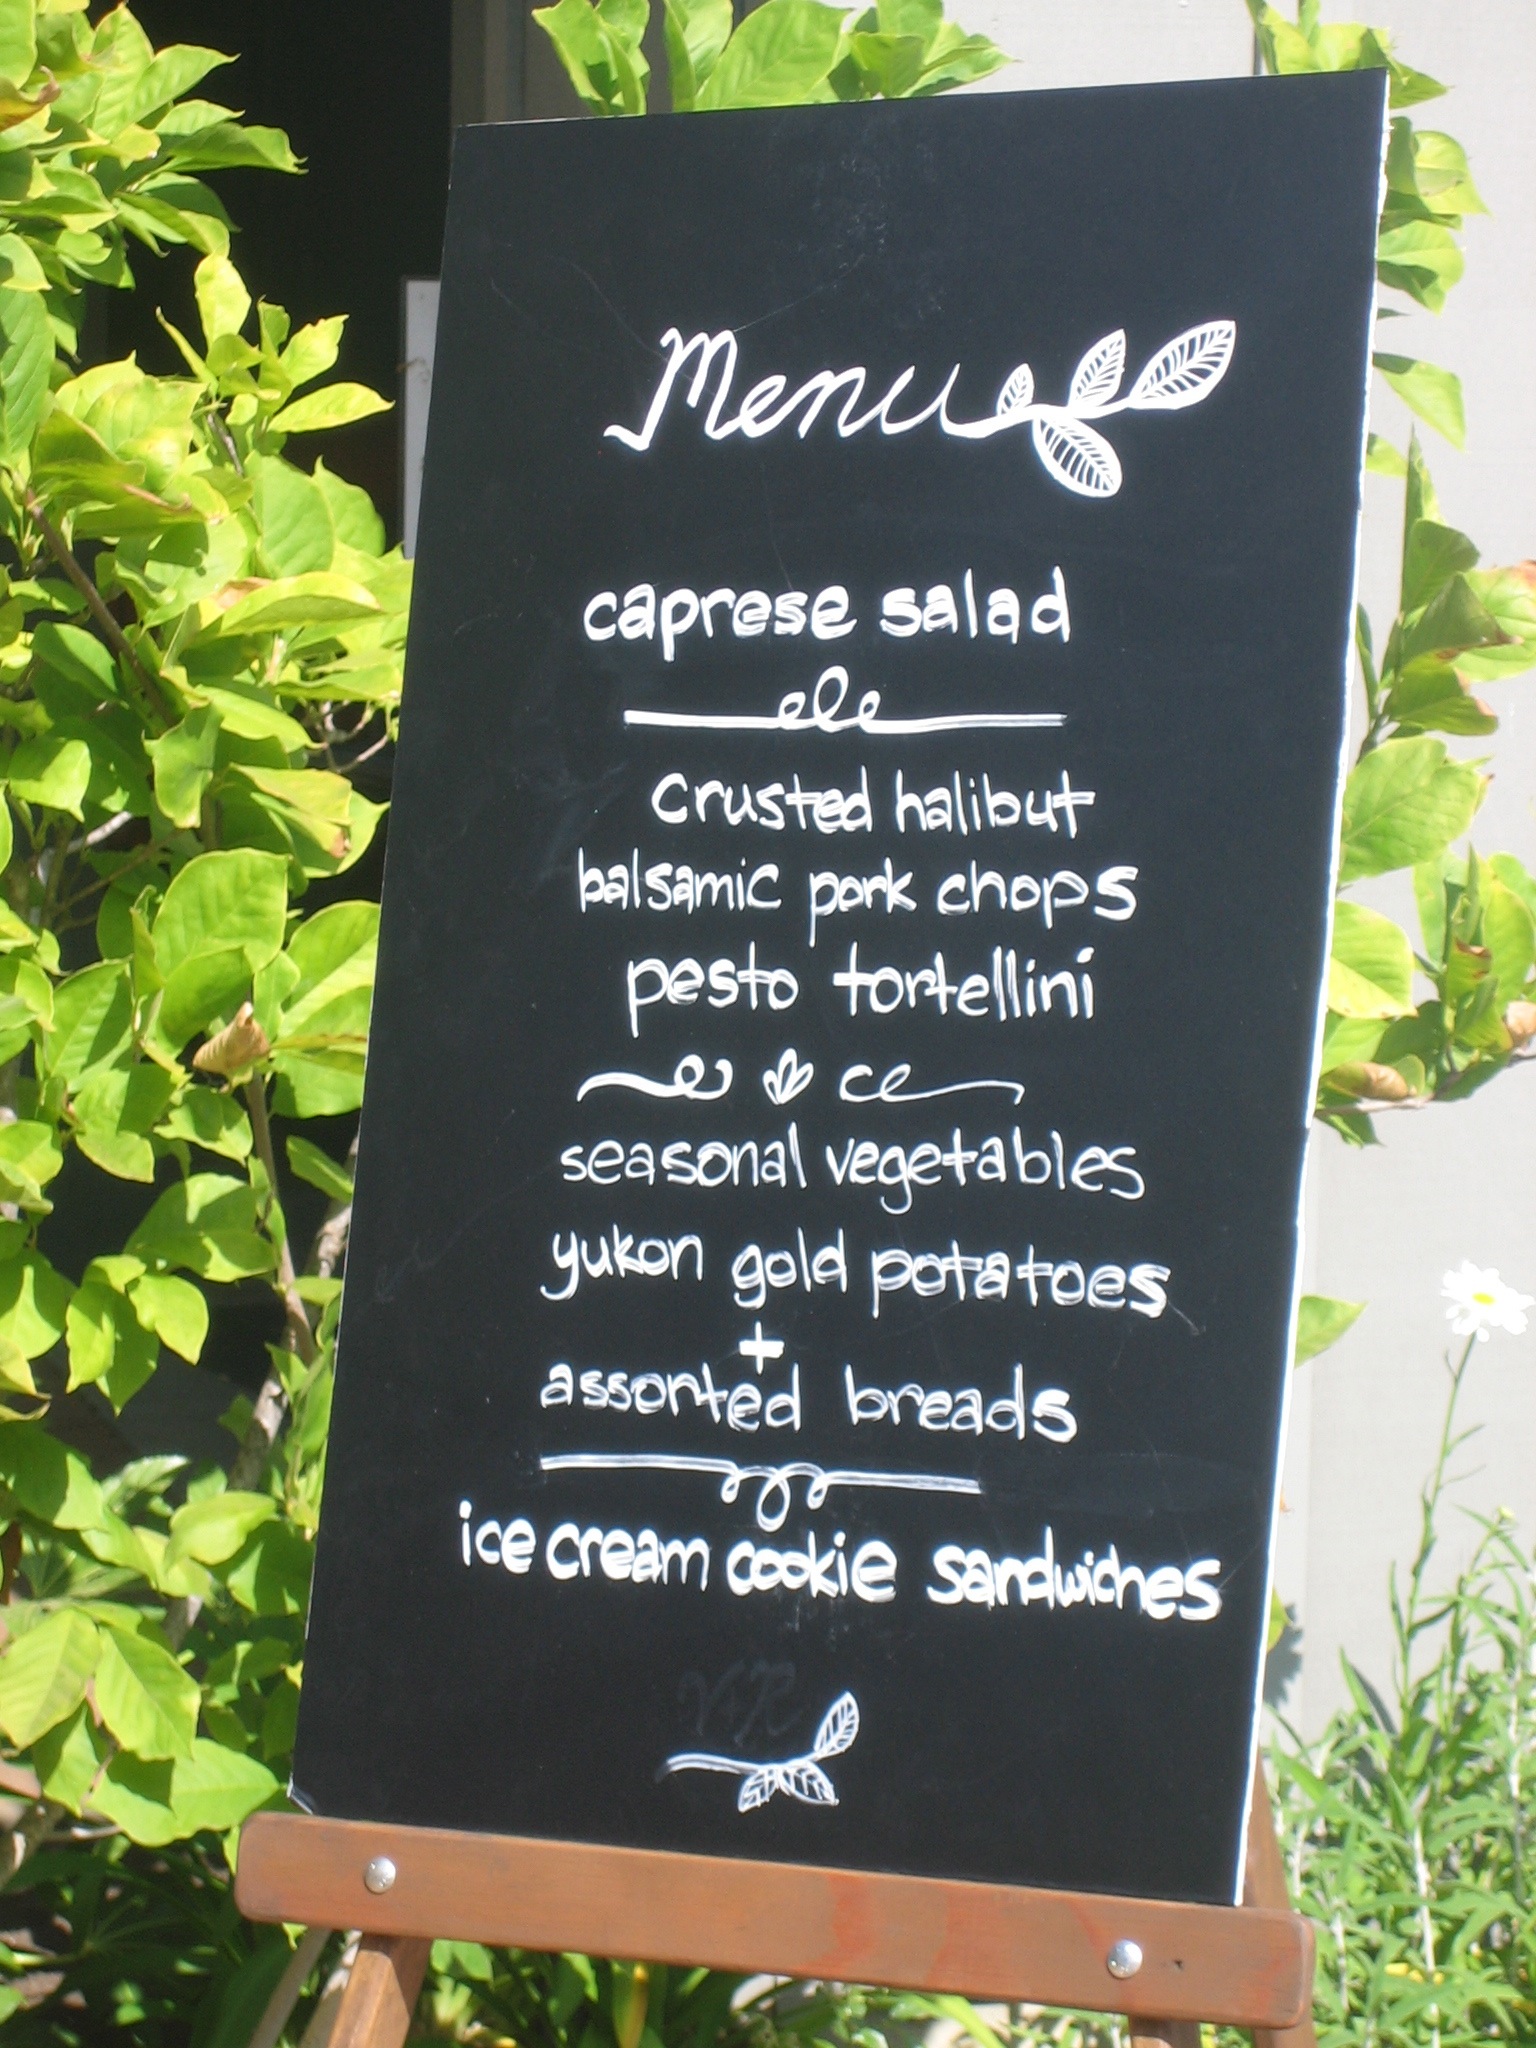 Menu
caprese salad
crusted halibut
balsamic pork chops
pesto tortellini
seasonal vegetables
yukon gold potatoes
+
assorted breads
ice cream cookie sandwiches